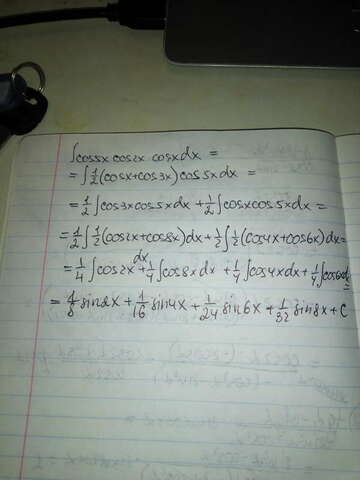 ∫cos5x cos2x cosxdx =
= ∫½(cosx+cos3x)cos5xdx =
= ½∫cos3xcos5xdx + ½∫cosxcos5xdx =
= ½∫½(cos2x+cos8x)dx + ½∫½(cos4x+cos6x)dx =
= ¼∫cos2x dx + ¼∫cos8xdx + ¼∫cos4xdx + ¼∫cos6xdx =
= 1/8 sin2x + 1/16 sin4x + 1/24 sin6x + 1/32 sin8x + C